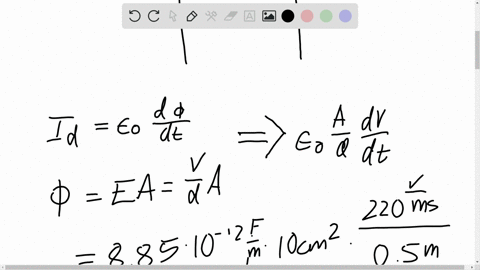 I_d = ε₀ dφ/dt ⟹ ε₀ A/d dV/dt
φ = EA = V/d A
= 8.85 · 10⁻¹² F/m · 10cm² · 220 V/ms / 0.5m